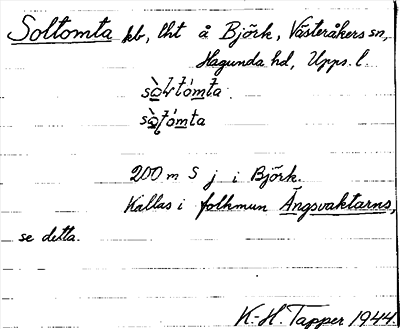 Soltomta kb, lht å Björk, Västeråkers sn,
Hagunda hd, Upps. l.
200 m S j i Björk.
Kallas i folkmun Ängsvaktarns,
se detta.
K.-H. Tapper 1944.